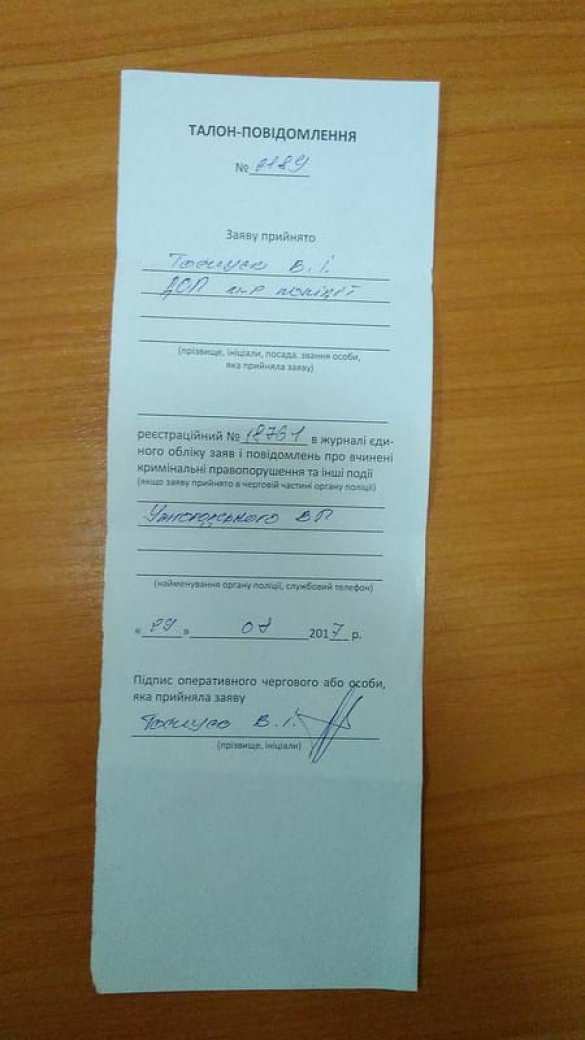 ТАЛОН-ПОВІДОМЛЕННЯ
№ 0189
Заяву прийнято
В. І.
ДОП м-р поліції
(прізвище, ініціали, посада, звання особи,
яка прийняла заяву)
реєстраційний № 18761 в журналі єди-
ного обліку заяв і повідомлень про вчинені
кримінальні правопорушення та інші події
(якщо заяву прийнято в черговій частині органу поліції)
Ужгородського ВП
(найменування органу поліції, службовий телефон)
« 09 » 2017 р.
Підпис оперативного чергового або особи,
яка прийняла заяву
В. І.
(прізвище, ініціали)